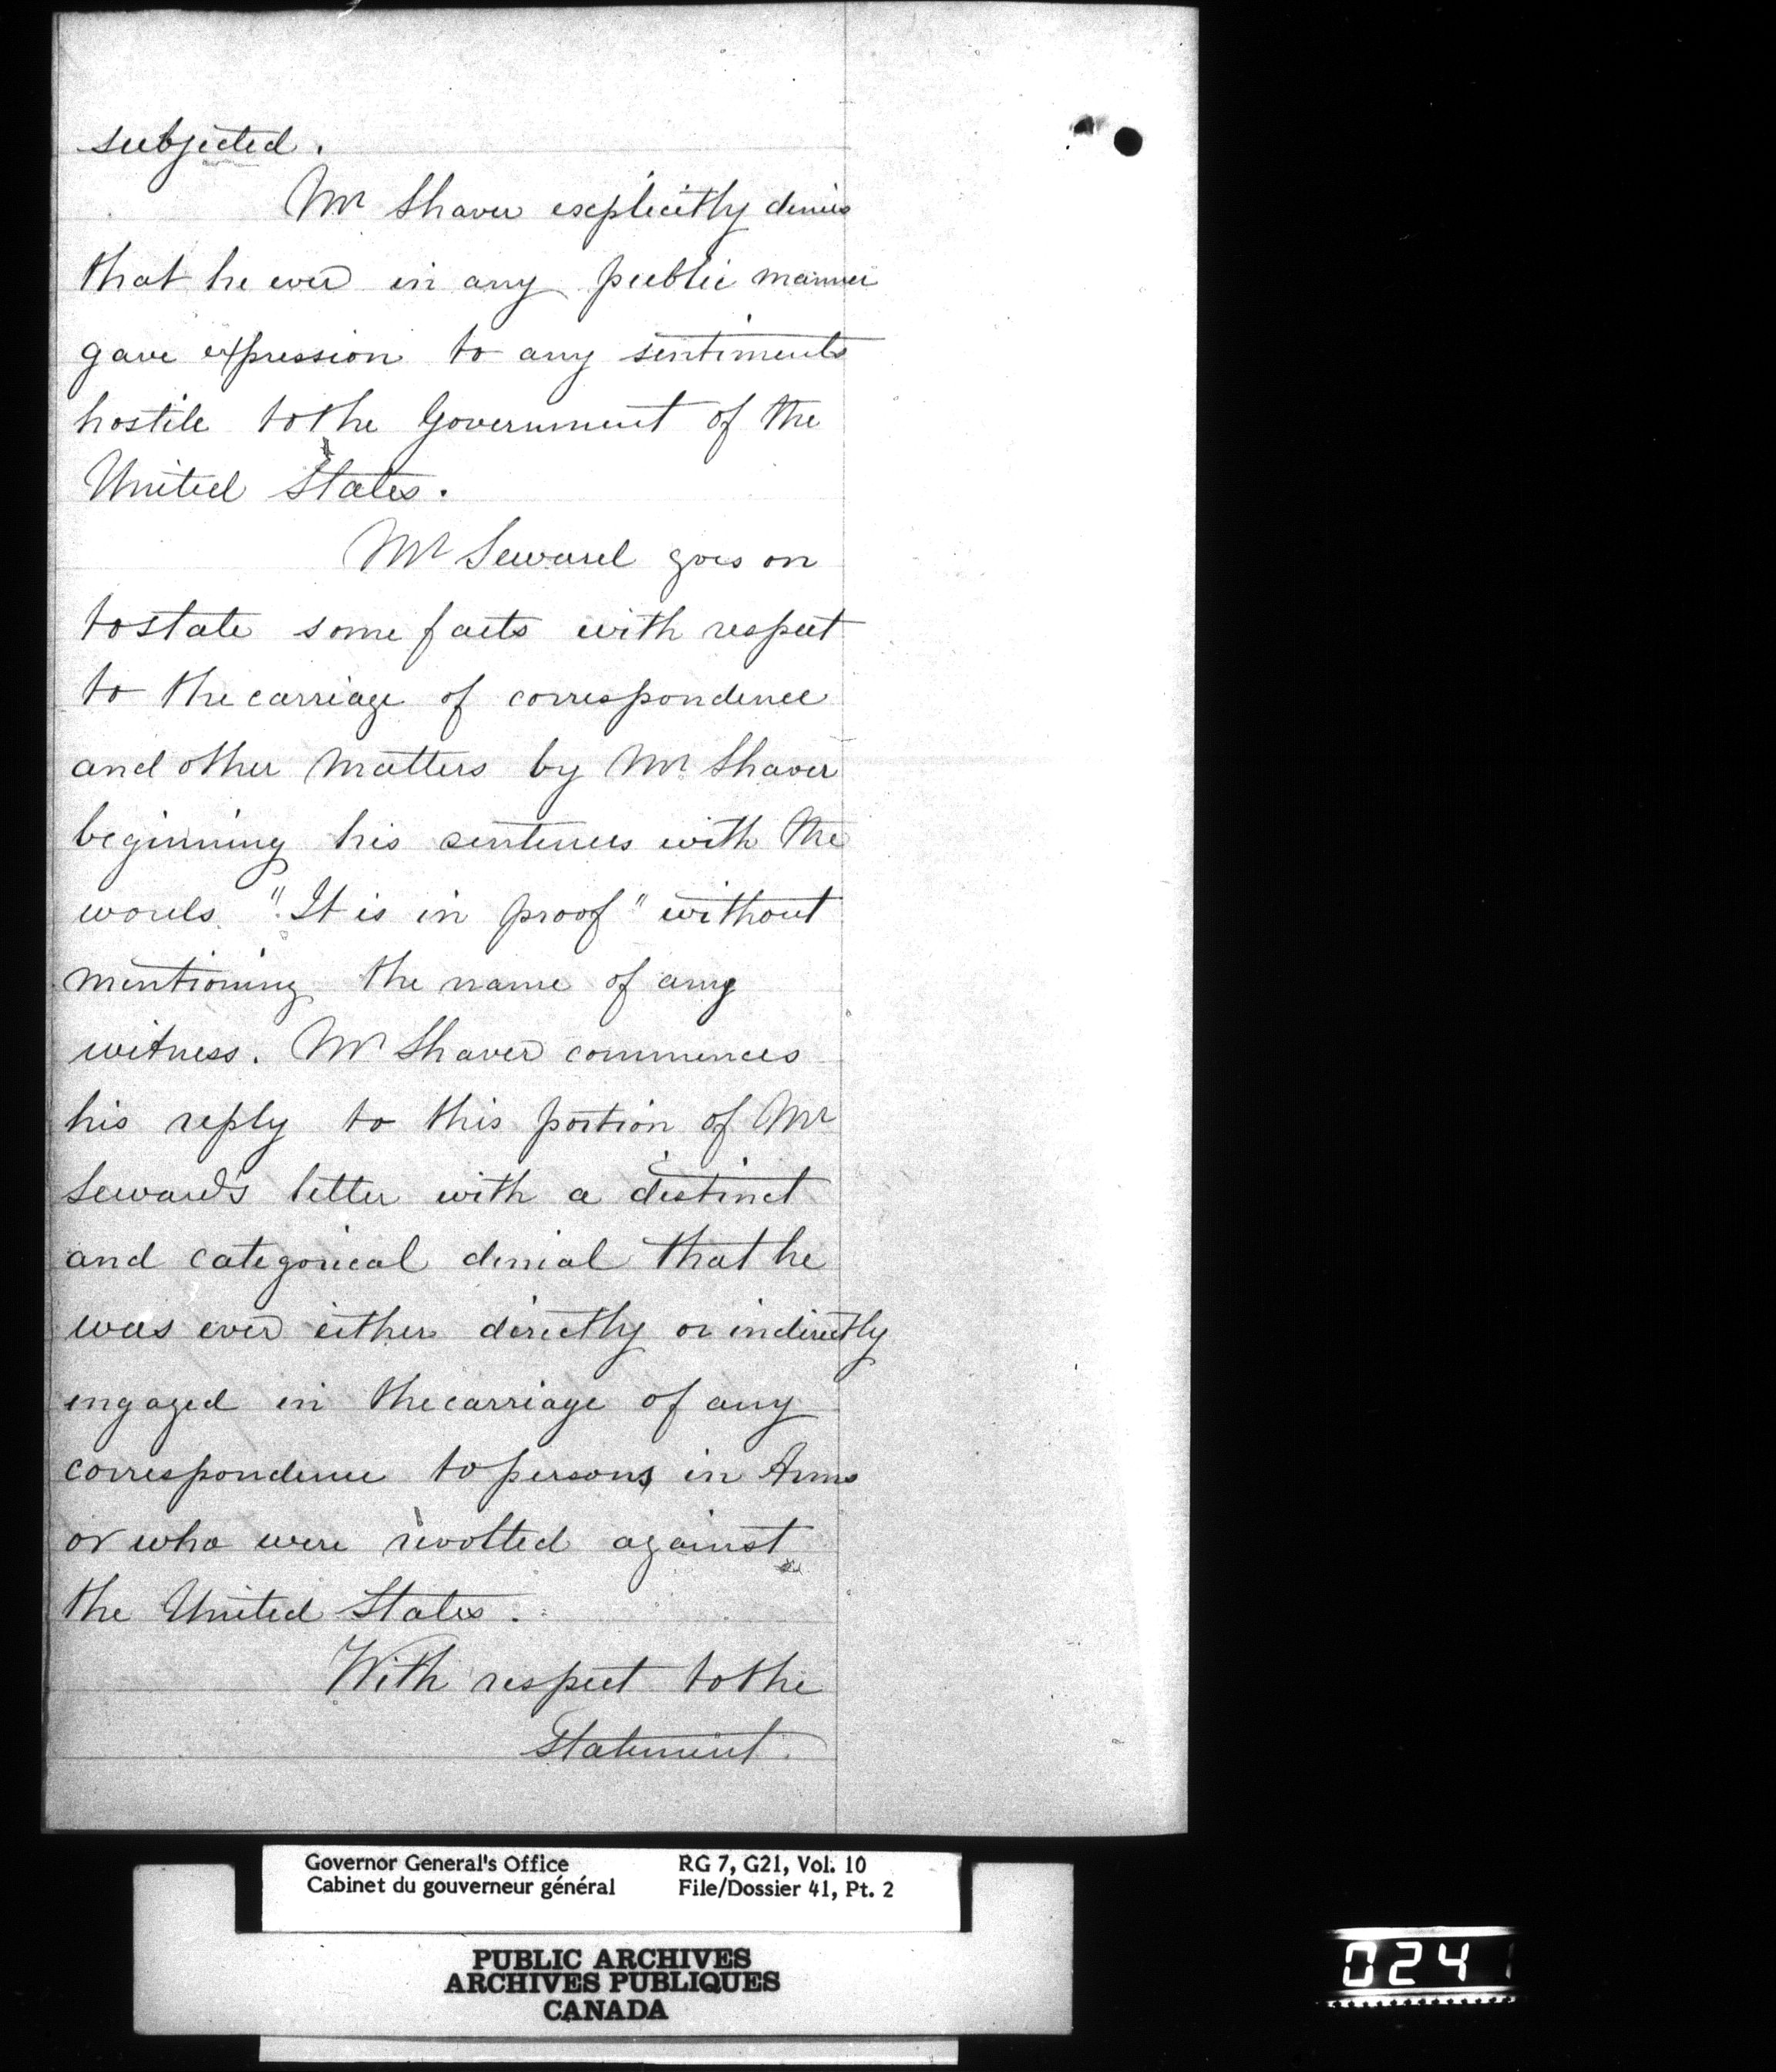 subjected.
Mr Shaver explicitly denies
that he ever in any public manner
gave expression to any sentiments
hostile to the Government of the
United States.
Mr Seward goes on
to state some facts with respect
to the carriage of correspondence
and other matters by Mr Shaver
beginning his sentences with the
words "It is in proof" without
mentioning the name of any
witness. Mr Shaver commences
his reply to this portion of Mr
Seward's letter with a distinct
and categorical denial that he
was ever either directly or indirectly
engaged in the carriage of any
correspondence to persons in Arms
or who were revolted against
the United States.
With respect to the
Statement.
Governor General's Office RG 7, G21, Vol. 10
Cabinet du gouverneur général File/Dossier 41, Pt. 2
PUBLIC ARCHIVES
ARCHIVES PUBLIQUES
CANADA
024